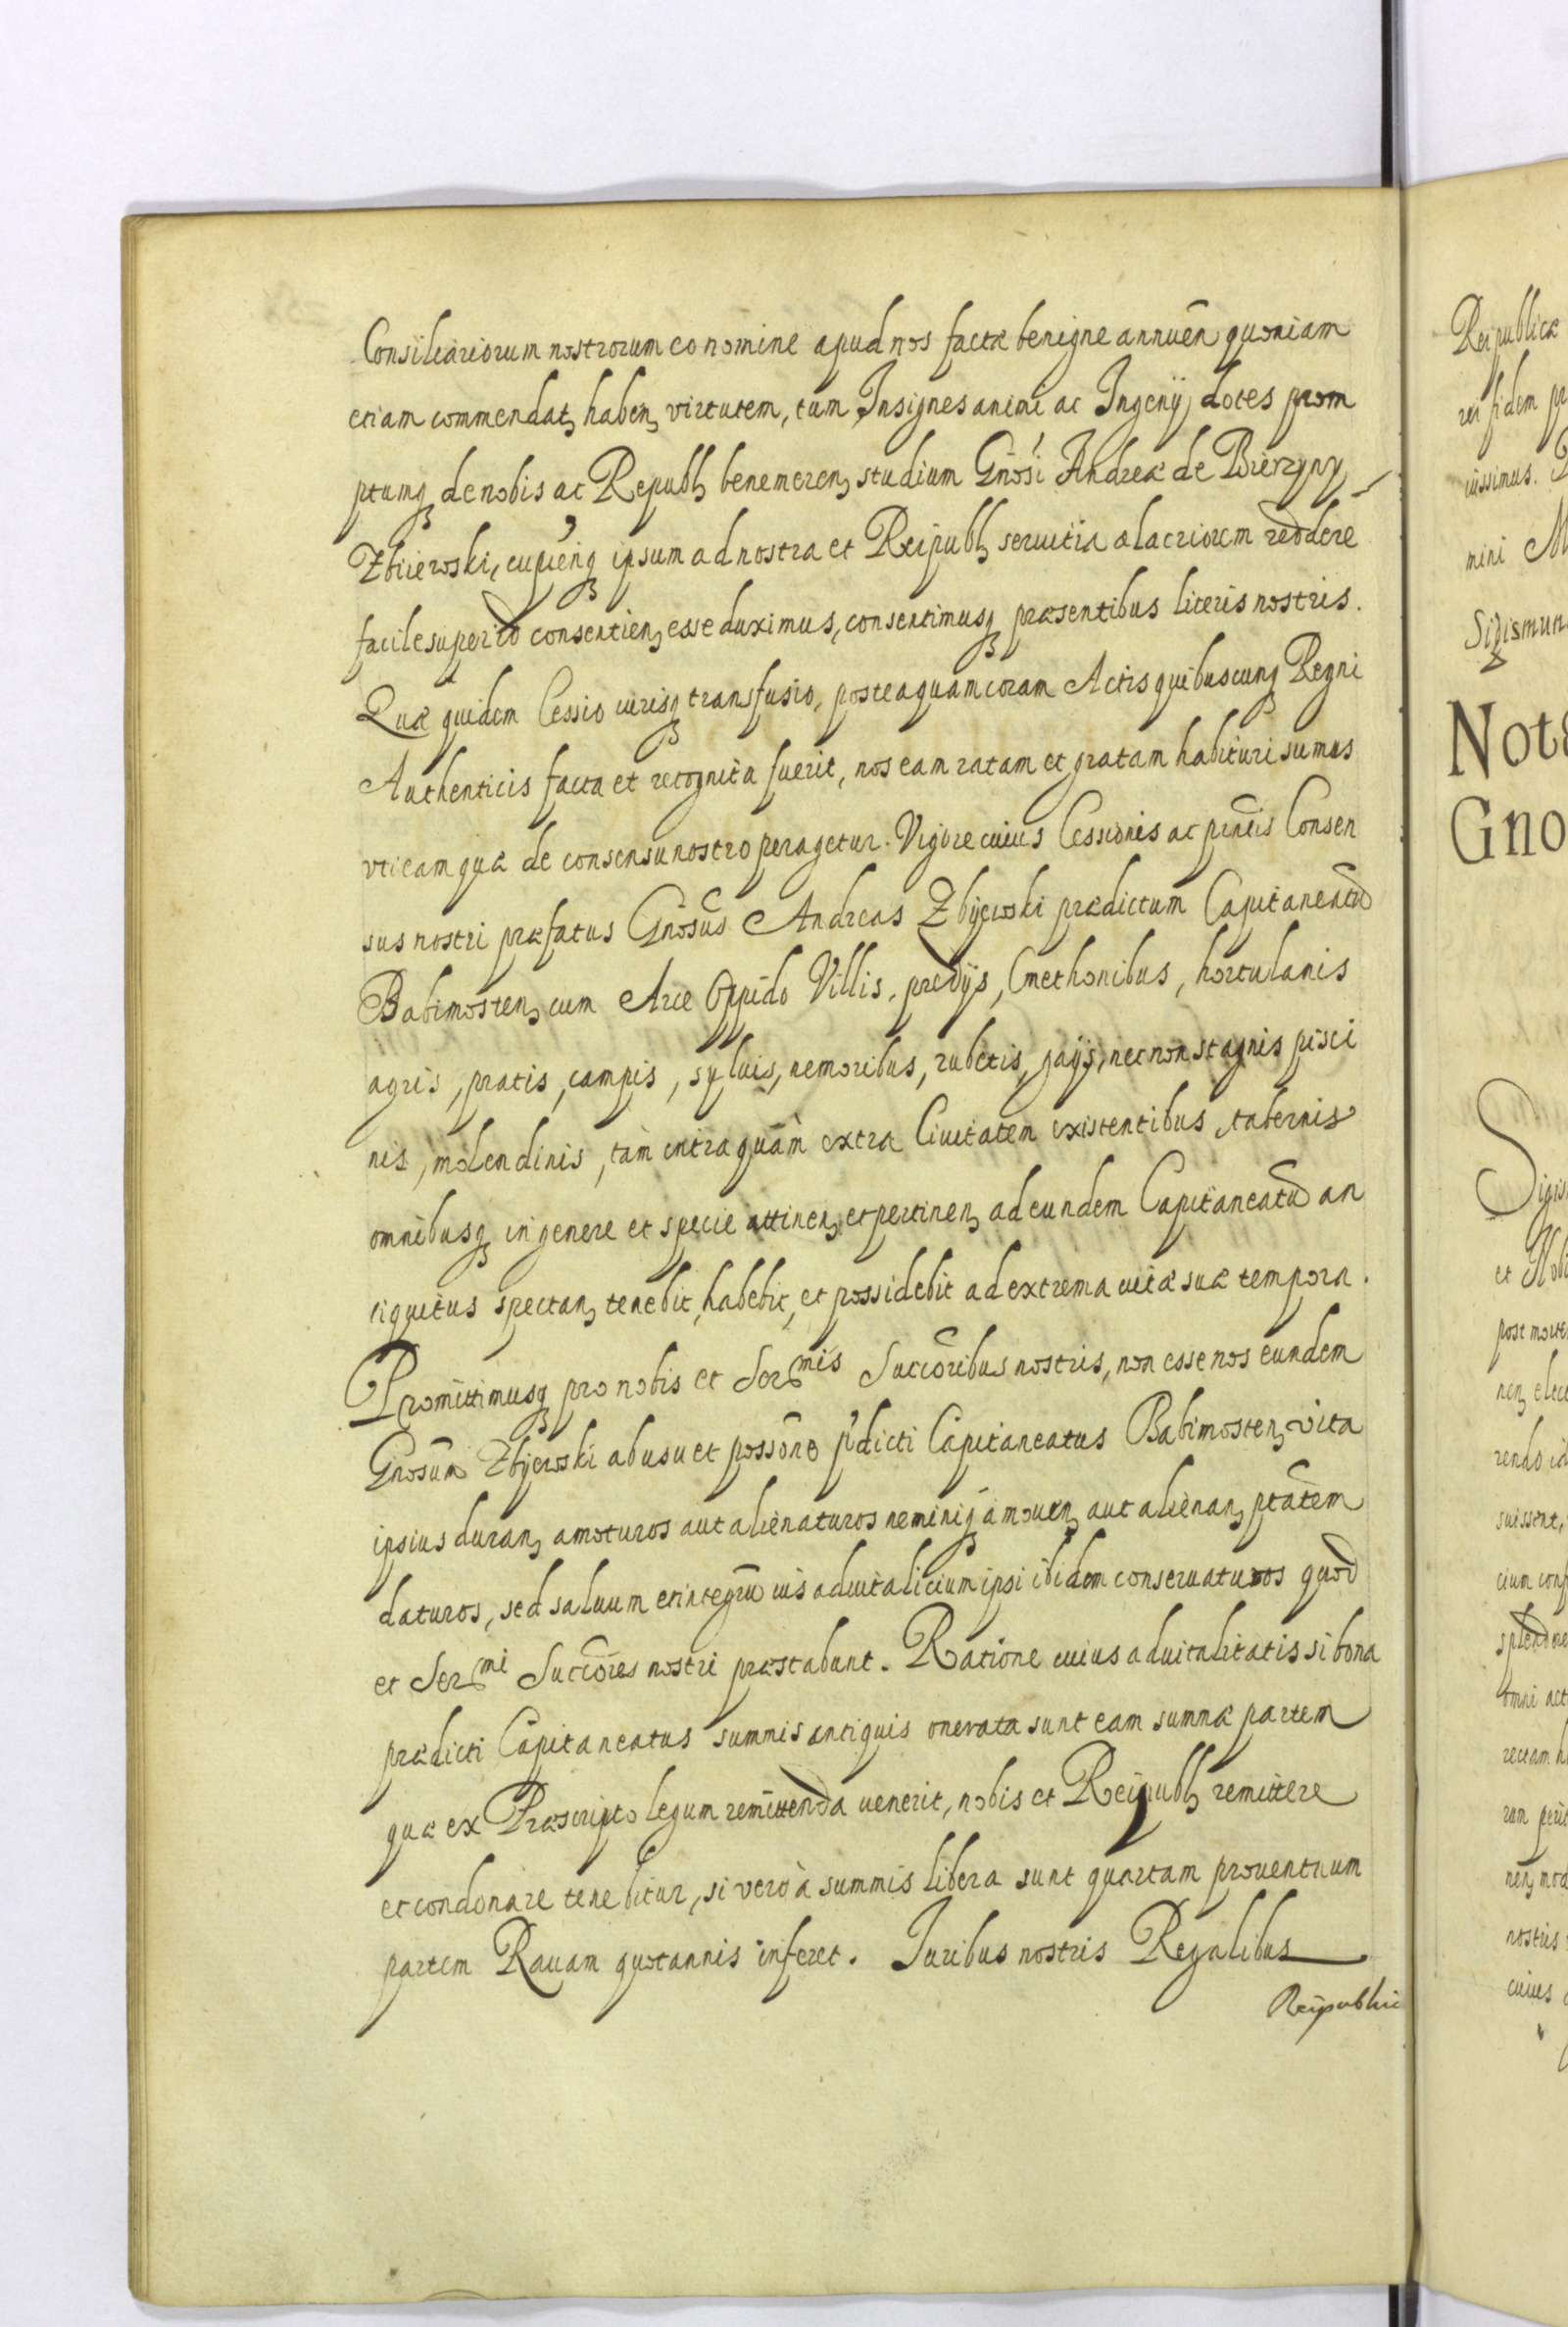 Consiliariorum nostrorum eo nomine apud nos factæ benigne annuen̄ quoniam
etiam commendat, haben, virtutem, tum Insignes animi ac Ingenÿ dotes prom
ptumq, de nobis ac Republ, benemeren, studium Gn̄osi Andreæ de Bierzyny
Zbiiewski, cupien̄q ipsum ad nostra et Reipubl, seruitia alacriorem reddere
facile super id consentien, esse duximus, consentimusq præsentibus literis nostris.
Quæ quidem Cessio iurisq transfusio, posteaquam coram Actis quibuscunq Regni
Authenticis facta et recognita fuerit, nos eam ratam et gratam habituri sumus
vti eam quæ de consensu nostro peragetur. Vigore cuius Cessionis ac pn̄tis Consen
sus nostri præfatus Gn̄osus Andreas Zbijewski prædictum Capitaneatū
Babimosten, cum Arce Oppido Villis, predÿs, Cmethonibus, hortulanis
agris, pratis, campis, syluis, nemoribus, rubetis, gaÿs, necnon stagnis pisci
nis, molendinis, tàm intra quàm extra Ciuitatem existentibus, tabernis
omnibusq in genere et specie attinen, et pertinen, ad eundem Capitaneatū an
tiquitus spectan, tenebit, habebit, et possidebit ad extrema vitæ suæ tempora.
Promittimusq pro nobis et Ser^mis Succ̄oribus nostris, non esse nos eundem
Gn̄osum Zbijewski ab usu et possōne p̄dicti Capitaneatus Babimosten, vita
ipsius duran, amoturos aut alienaturos neminiq amouen, aut alienan, ptātem
daturos, sed saluum et integrū ius aduitalicium ipsi ibidem conseruaturos quod
et Ser^mi Succ̄ores nostri præstabunt. Ratione cuius aduitalitatis si bona
prædicti Capitaneatus summis antiquis onerata sunt eam summæ partem
quæ ex Præscripto legum remittenda uenerit, nobis et Reipubl, remittere
et condonare tenebitur, si verò à summis libera sunt quartam prouentuum
partem Rauam quotannis inferet. Iuribus nostris Regalibus
Reipublic
Reipublicæ
rei fidem
mini
Sigismun
Not
Gno
Sigis
et
post morte
rendo
suissent,
omni act
nostris
cuius